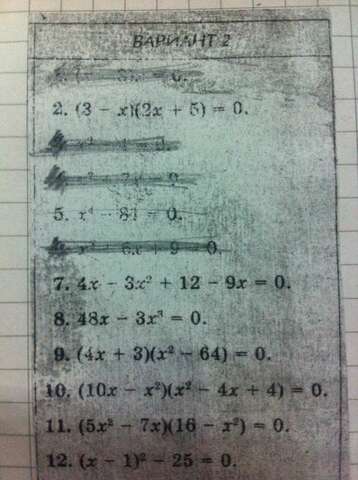 ВАРИАНТ 2
2. (3 − x)(2x + 5) = 0.
5. x⁴ − 81 = 0.
x² + 6x + 9 = 0.
7. 4x − 3x² + 12 − 9x = 0.
8. 48x − 3x³ = 0.
9. (4x + 3)(x² − 64) = 0.
10. (10x − x²)(x² − 4x + 4) = 0.
11. (5x² − 7x)(16 − x²) = 0.
12. (x − 1)² − 25 = 0.